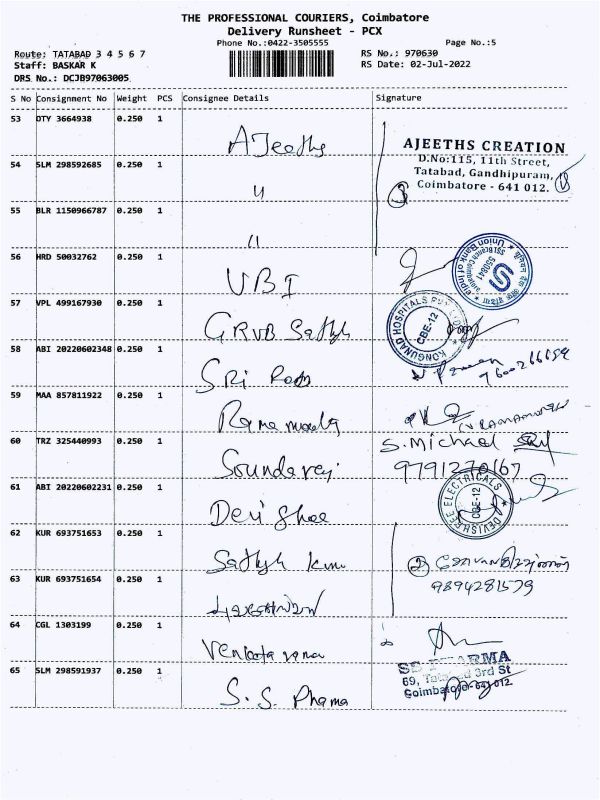 THE PROFESSIONAL COURIERS, Coimbatore
Delivery Runsheet - PCX
Phone No.:0422-3505555
Page No.:5
Route: TATABAD 3 4 5 6 7
RS No.: 970630
Staff: BASKAR K
RS Date: 02-Jul-2022
DRS No.: DCJB97063005
S No Consignment No Weight PCS Consignee Details Signature
53 OTY 3664938 0.250 1 AJeeths
AJEETHS CREATION
D.No:115, 11th Street,
Tatabad, Gandhipuram,
Coimbatore - 641 012.
54 SLM 298592685 0.250 1 〃
55 BLR 1150966787 0.250 1 〃
56 HRD 50032762 0.250 1 UBI
Union Bank of India
57 VPL 499167930 0.250 1
KONGUNAD HOSPITALS PVT LTD
CBE-12
58 ABI 20220602348 0.250 1 SRi
59 MAA 857811922 0.250 1
60 TRZ 325440993 0.250 1
S. Michael
9791270167
61 ABI 20220602231 0.250 1 Devi Shree
ADEVISHREE ELECTRICALS
CBE-12
62 KUR 693751653 0.250 1
63 KUR 693751654 0.250 1
9894281579
64 CGL 1303199 0.250 1
65 SLM 298591937 0.250 1 S.S. Phama
SS PHARMA
69, Tatabad 3rd St
Coimbatore-641 012